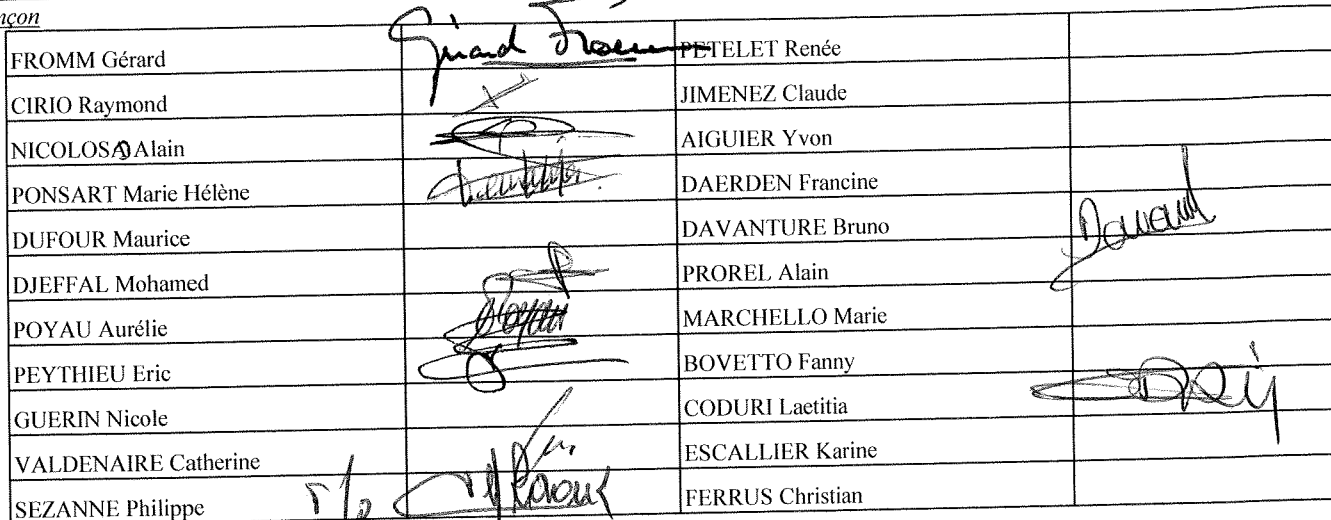 nçon
FROMM Gérard Gérard Fromm PETELET Renée
CIRIO Raymond JIMENEZ Claude
NICOLOSO Alain AIGUIER Yvon
PONSART Marie Hélène DAERDEN Francine
DUFOUR Maurice DAVANTURE Bruno
DJEFFAL Mohamed PROREL Alain
POYAU Aurélie Poyau MARCHELLO Marie
PEYTHIEU Eric BOVETTO Fanny
GUERIN Nicole CODURI Laetitia
VALDENAIRE Catherine ESCALLIER Karine
SEZANNE Philippe FERRUS Christian